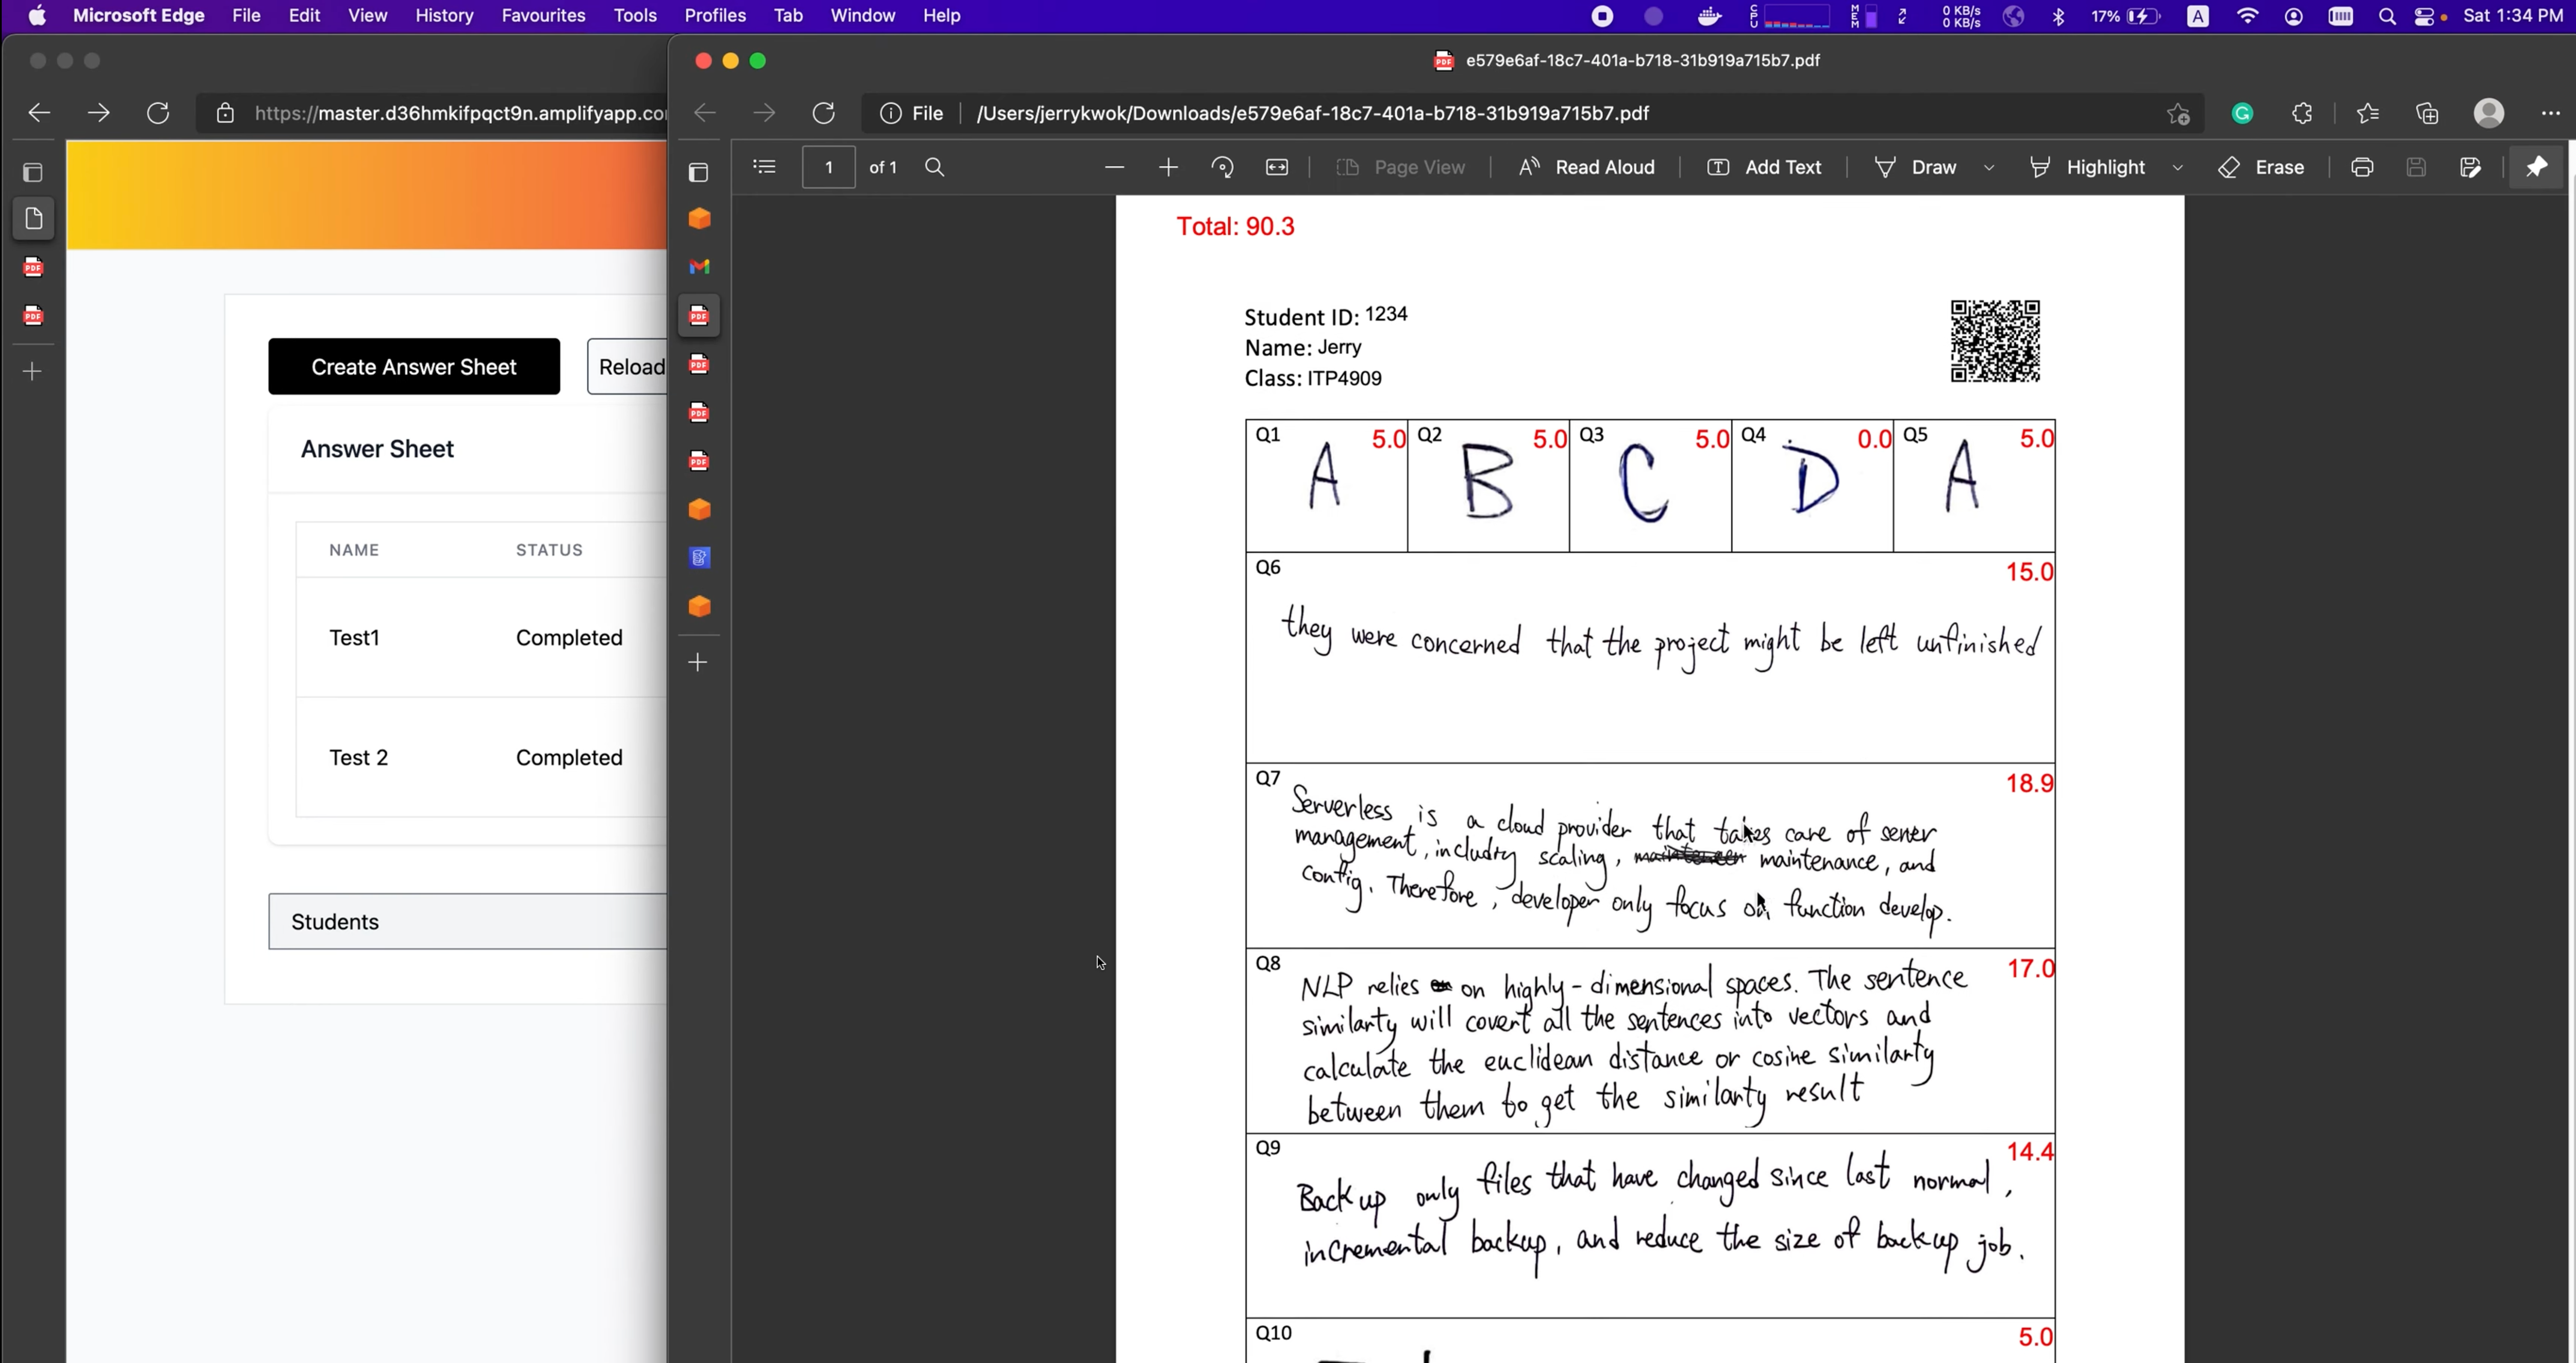 Microsoft Edge File Edit View History Favourites Tools Profiles Tab Window Help
CPU MEM 0 KB/s 0 KB/s 17% A Sat 1:34 PM
e579e6af-18c7-401a-b718-31b919a715b7.pdf
https://master.d36hmkifpqct9n.amplifyapp.co
File /Users/jerrykwok/Downloads/e579e6af-18c7-401a-b718-31b919a715b7.pdf
1 of 1 Page View Read Aloud Add Text Draw Highlight Erase
Create Answer Sheet Reload
Answer Sheet
NAME STATUS
Test1 Completed
Test 2 Completed
Students
Total: 90.3
Student ID: 1234
Name: Jerry
Class: ITP4909
Q1 5.0 Q2 5.0 Q3 5.0 Q4 0.0 Q5 5.0
A B C D A
Q6 15.0
they were concerned that the project might be left unfinished
Q7 18.9
Serverless is a cloud provider that takes care of server
management, including scaling, maintenance, and
config. Therefore, developer only focus on function develop.
Q8 17.0
NLP relies on highly-dimensional spaces. The sentence
similarty will covert all the sentences into vectors and
calculate the euclidean distance or cosine similarty
between them to get the similarty result
Q9 14.4
Backup only files that have changed since last normal,
incremental backup, and reduce the size of backup job.
Q10 5.0